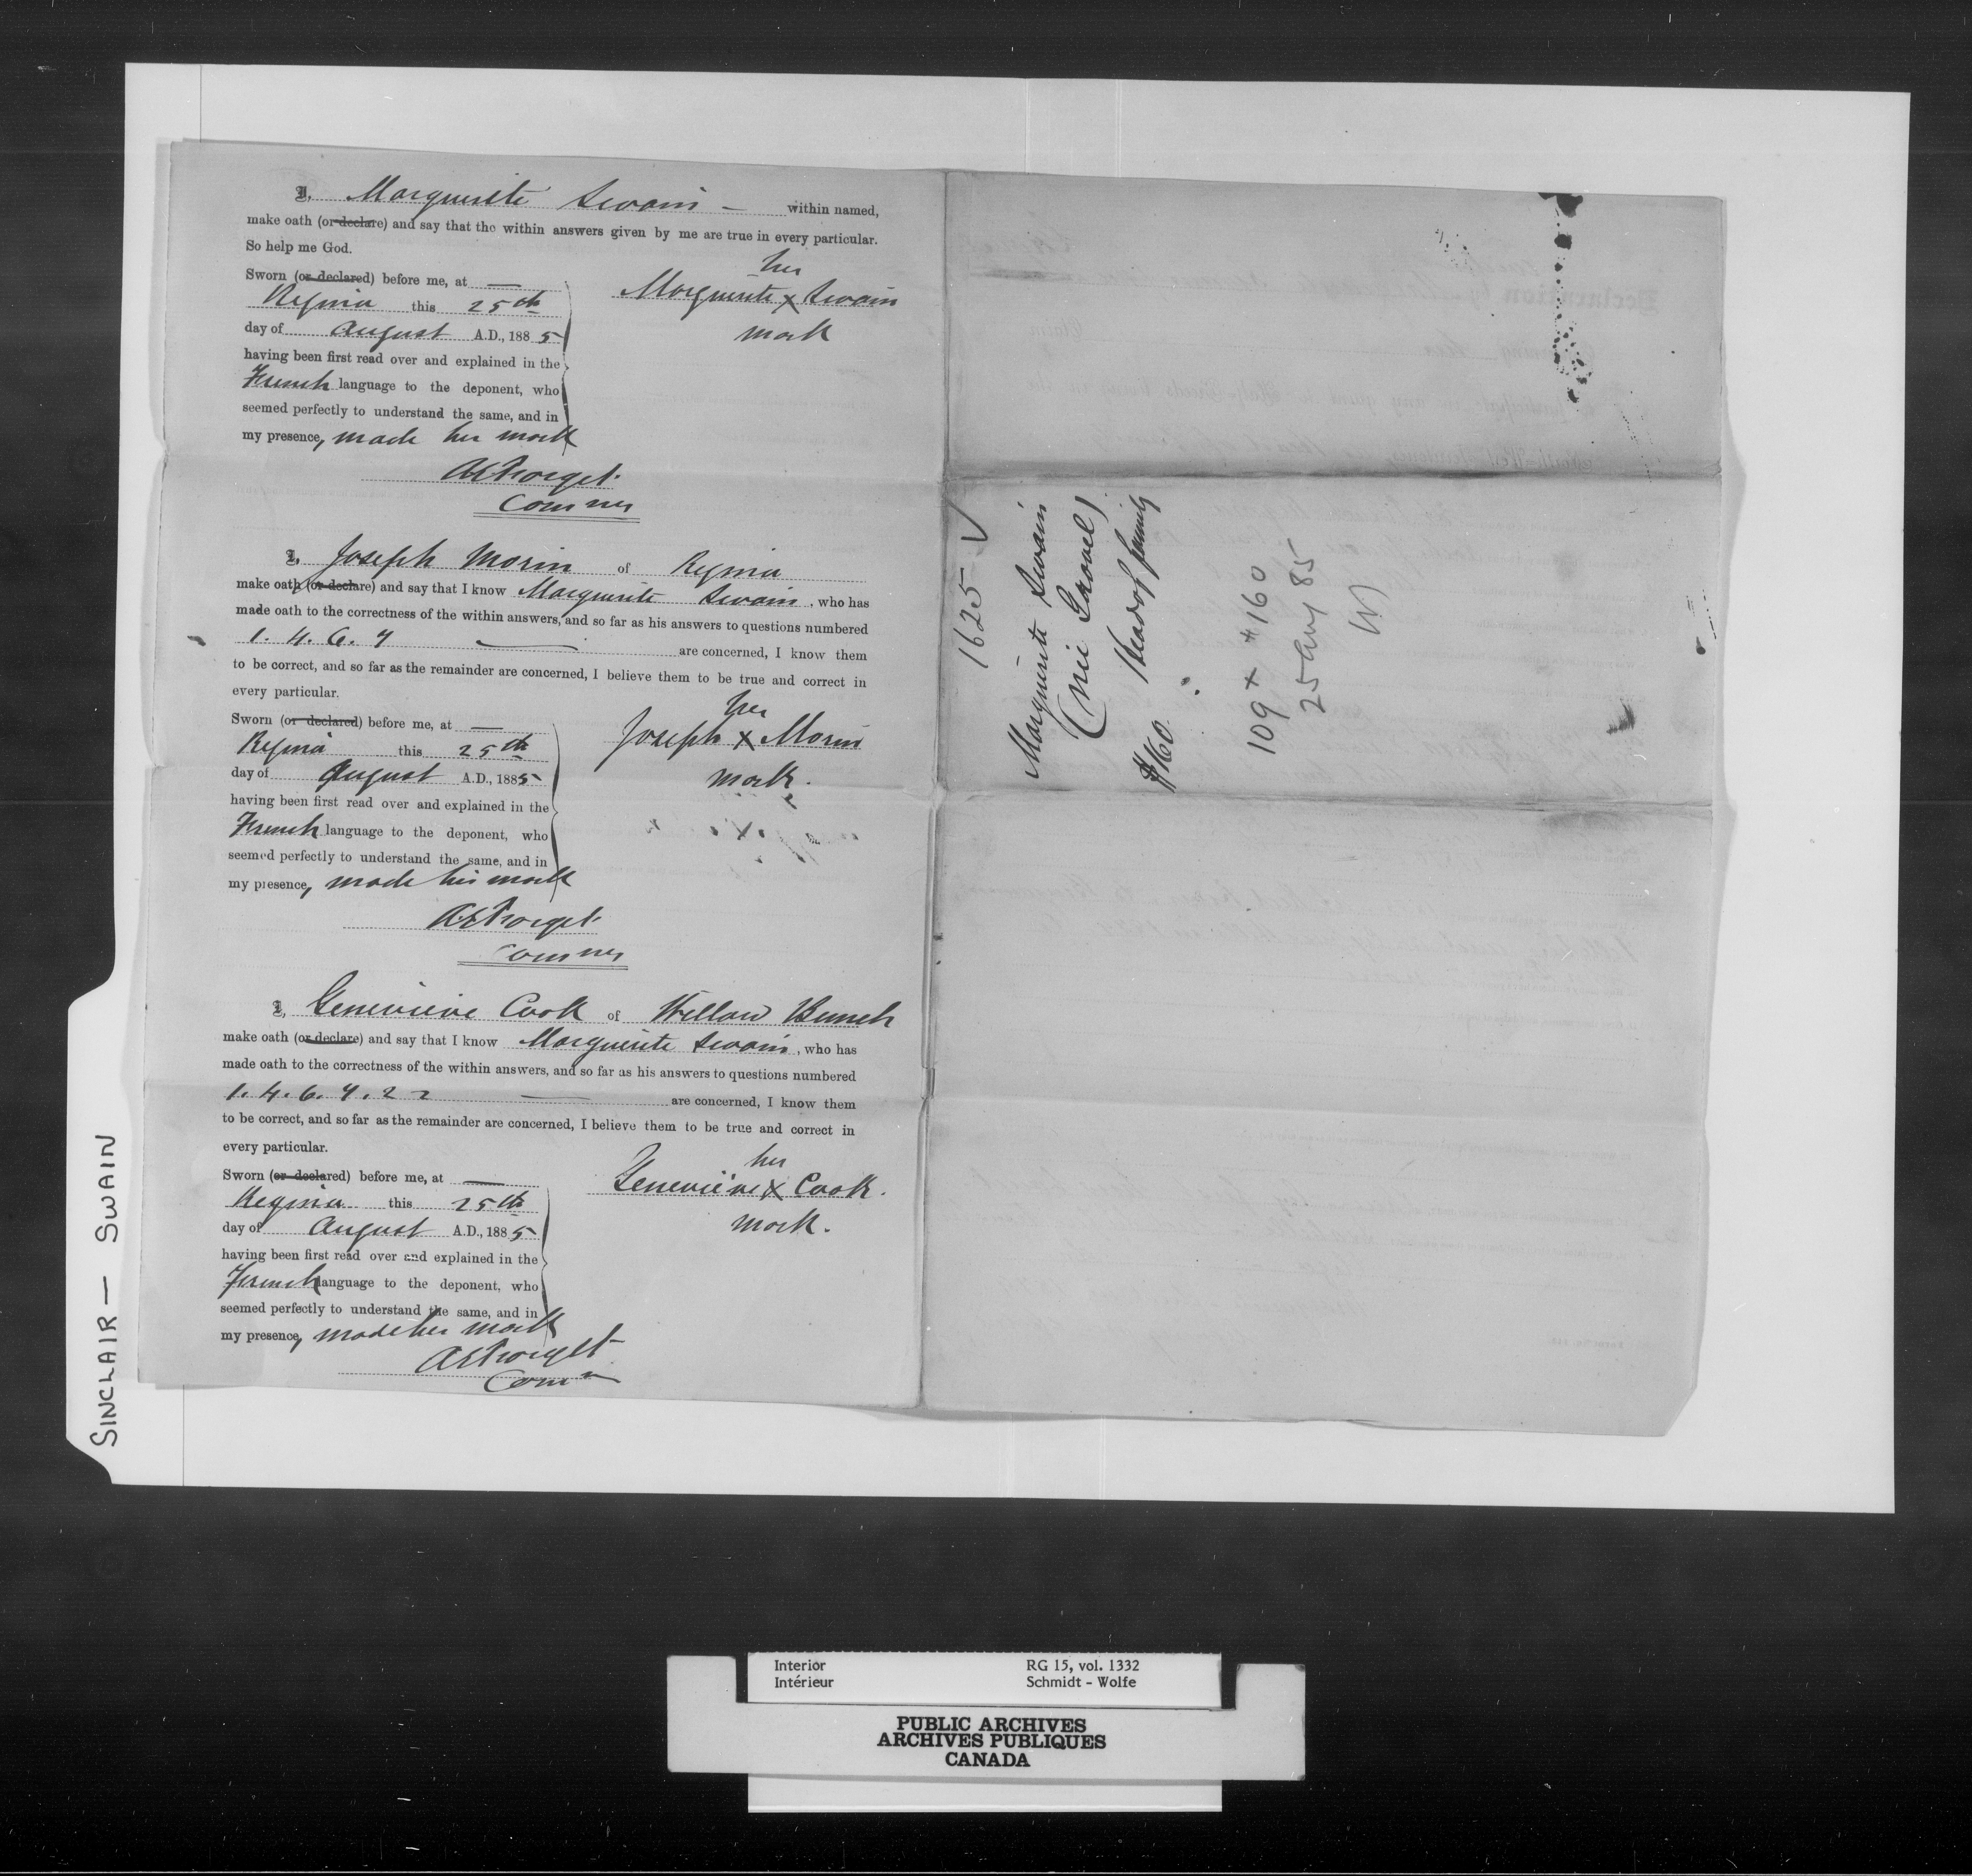 I, Marguerite Swain — within named,
make oath (or declare) and say that the within answers given by me are true in every particular.
So help me God.
Sworn (or declared) before me, at —
Regina this 25th
day of August A.D., 1885
having been first read over and explained in the
French language to the deponent, who
seemed perfectly to understand the same, and in
my presence, made her mark
her
Marguerite X Swain
mark
AEForget
Commr
I, Joseph Morin of Regina
make oath (or declare) and say that I know Marguerite Swain, who has
made oath to the correctness of the within answers, and so far as his answers to questions numbered
1. 4. 6. 7 — are concerned, I know them
to be correct, and so far as the remainder are concerned, I believe them to be true and correct in
every particular.
Sworn (or declared) before me, at —
Regina this 25th
day of August A.D., 1885
having been first read over and explained in the
French language to the deponent, who
seemed perfectly to understand the same, and in
my presence, made his mark
her
Joseph X Morin
mark.
AEForget
Commr
I, Genevieve Cook of Willow Bunch
make oath (or declare) and say that I know Marguerite Swain, who has
made oath to the correctness of the within answers, and so far as his answers to questions numbered
1. 4. 6. 7. 22 — are concerned, I know them
to be correct, and so far as the remainder are concerned, I believe them to be true and correct in
every particular.
Sworn (or declared) before me, at —
Regina this 25th
day of August A.D., 1885
having been first read over and explained in the
French language to the deponent, who
seemed perfectly to understand the same, and in
my presence, made her mark
her
Genevieve X Cook.
mark.
AEForget
Comr
1625
Marguerite Swain
(née Gravel)
Head of family
$160.
109 x $160
25 Aug 85
SINCLAIR — SWAIN
Interior
Intérieur
RG 15, vol. 1332
Schmidt - Wolfe
PUBLIC ARCHIVES
ARCHIVES PUBLIQUES
CANADA